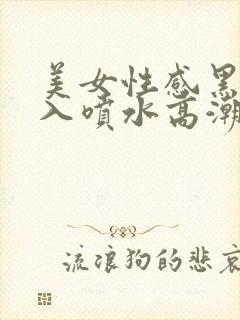 美女性感黑
入喷水高潮
流浪狗的悲哀